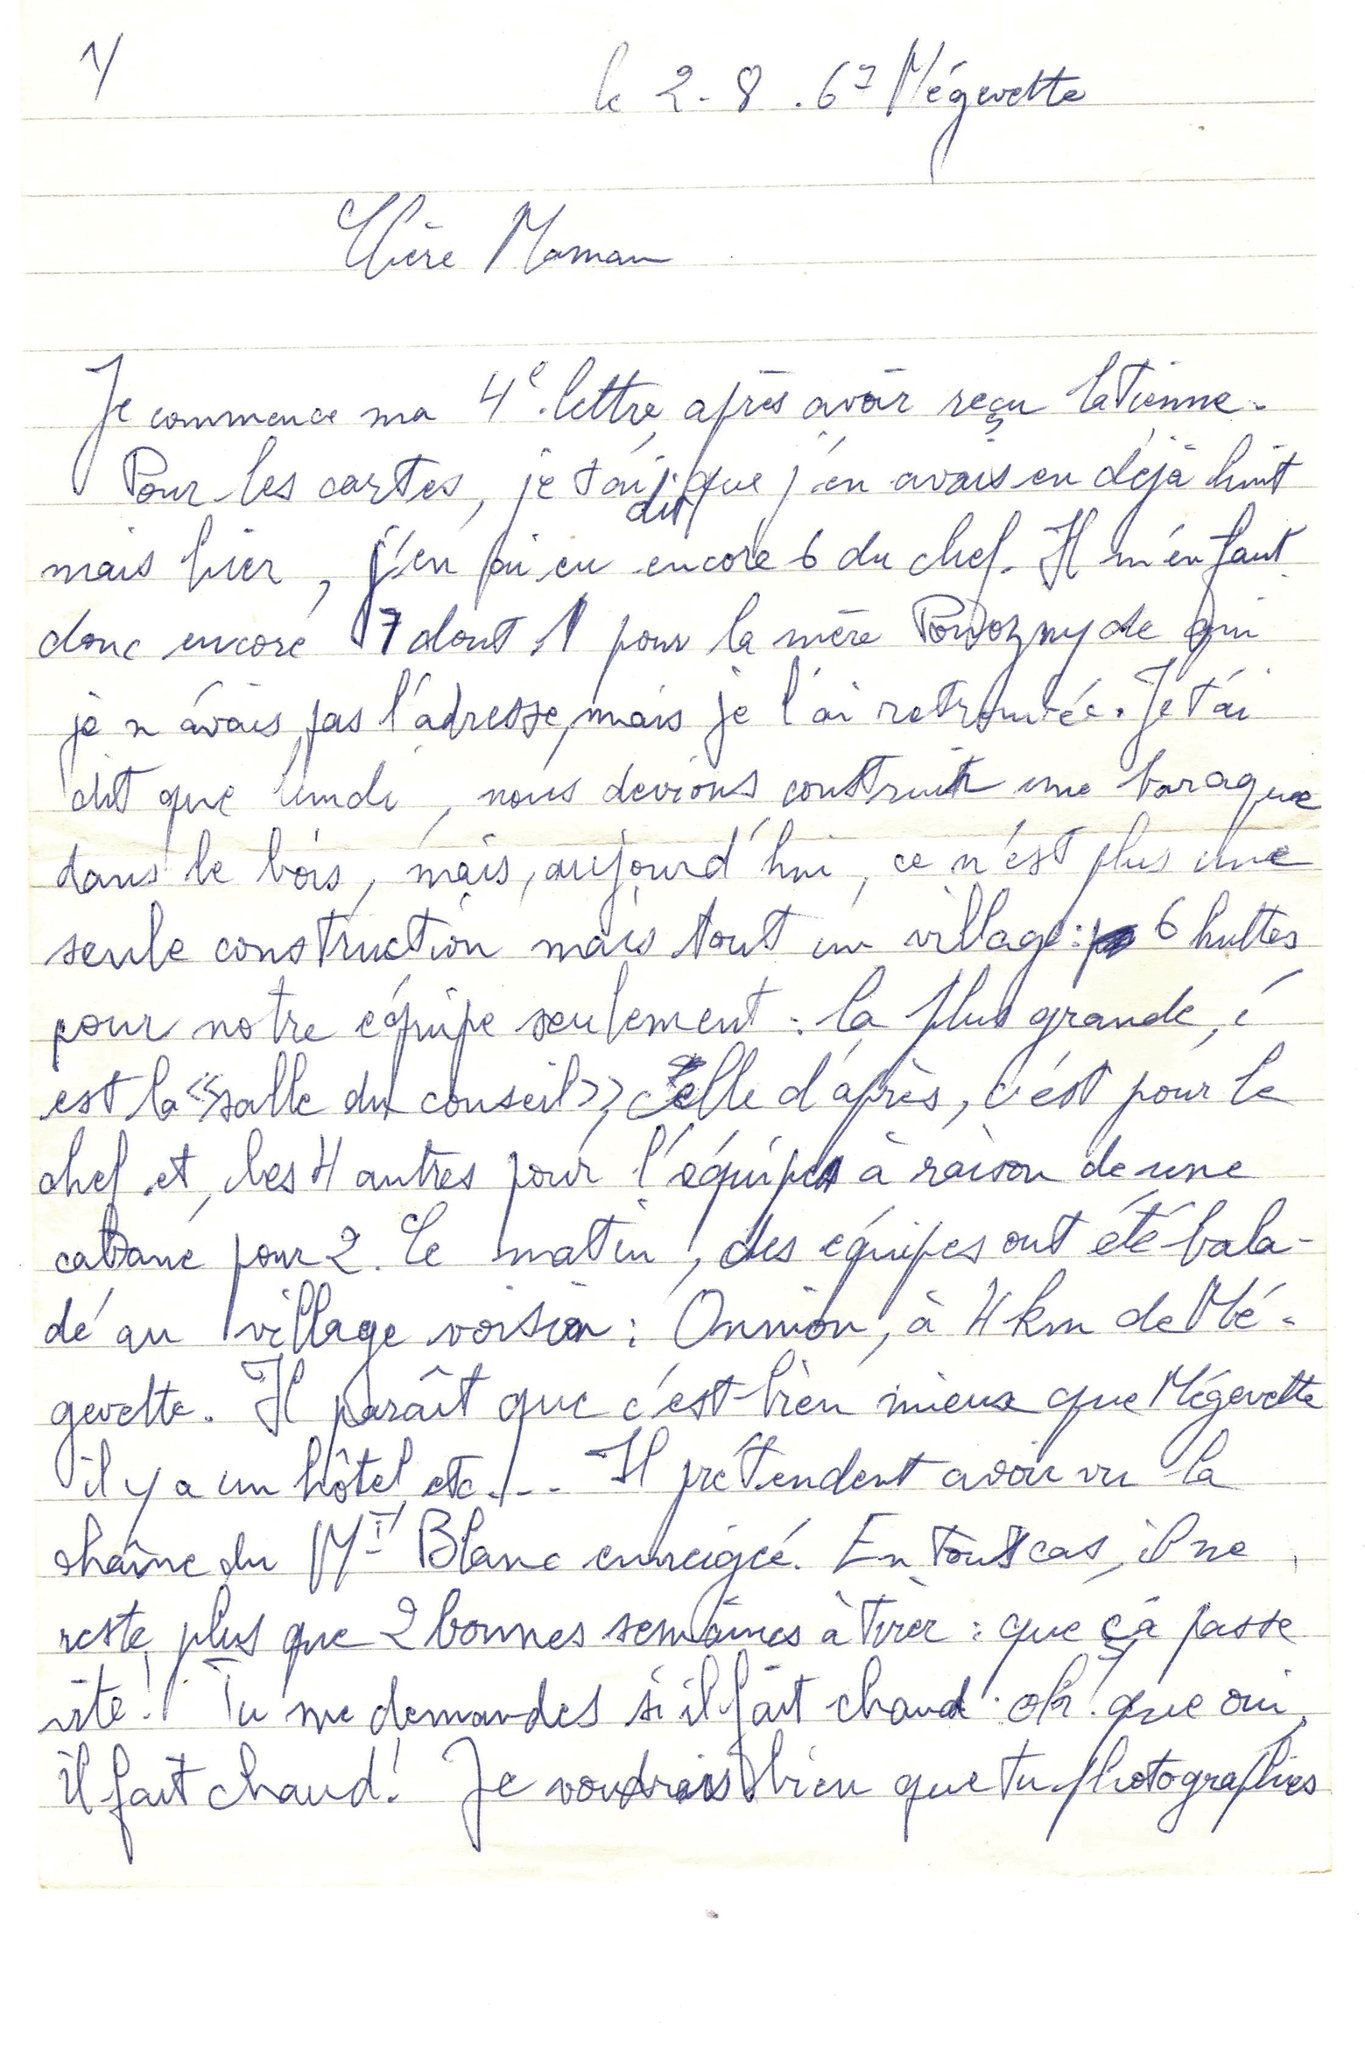 1/
le 2.8.67 Mégevette
Chère Maman
Je commence ma 4e lettre après avoir reçu la tienne.
Pour les cartes, je t'ai dit que j'en avais eu déjà huit
mais hier, j'en ai eu encore 6 du chef. Il m'en faut
donc encore 7 dont 1 pour la mère Powozny de qui
je n'avais pas l'adresse, mais je l'ai retrouvée. Je t'ai
dit que lundi, nous devions construir une baraque
dans le bois, mais, aujourd'hui, ce n'est plus une
seule construction mais tout un village : 6 huttes
pour notre équipe seulement : la plus grande, c'
est la «salle du conseil», celle d'après, c'est pour le
chef et les 4 autres pour l'équipe à raison de une
cabane pour 2. Ce matin, des équipes ont été bala-
dé au village voisin : Onnion, à 4 km de Mé-
gevette. Il paraît que c'est bien mieux que Mégevette
il y a un hôtel, etc... Il prétendent avoir vu la
chaîne du Mt Blanc enneigée. En tout cas, il ne
reste plus que 2 bonnes semaines à tirer : que çà passe
vite ! Tu me demandes si il fait chaud : oh ! que oui,
il fait chaud ! Je voudrais bien que tu photographies